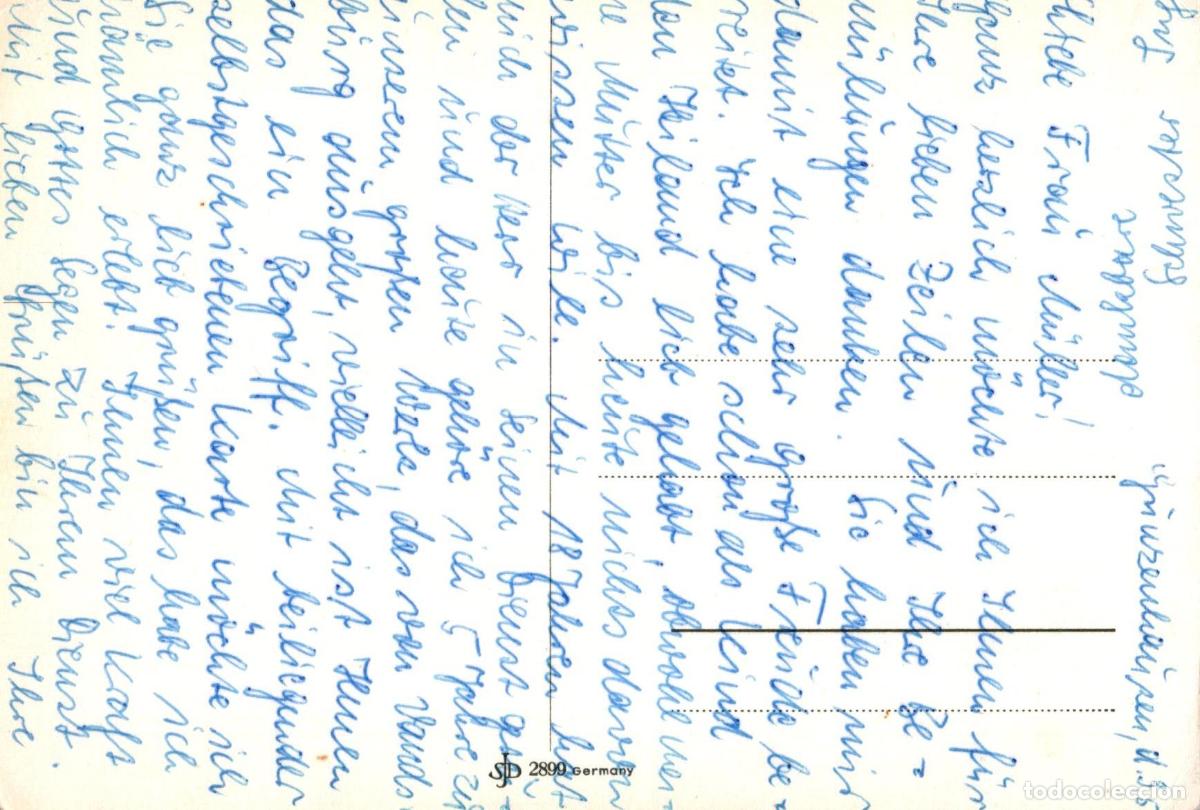 Günzenhausen, d.
Frau Müller!
ganz herzlich möchte ich Ihnen für
Ihre lieben Zeilen und Ihre Be=
mühungen danken. Sie haben mir
damit eine sehr große Freude be=
reitet. Ich habe schon als Kind
den Heiland lieb gehabt obwohl mei
ne Mutter bis heute nichts davon
wissen wile. Mit 18 Jahren hat
mich der Herr in Seinen Dienst geru=
fen und heute gehöre ich 5 Jahre zu
unserem großen Werk, das von Vands
burg ausgeht, vielleicht ist Ihnen
das ein Begriff. Mit beiliegender
selbstgeschriebenen Karte möchte ich
Sie ganz lieb grüßen, das habe ich
nämlich erlebt! Ihnen viel Kraft
und Gottes Segen zu Ihrem Dienst.
Mit lieben Grüßen bin ich Ihre
Schwester
SJD 2899 Germany
todocoleccion